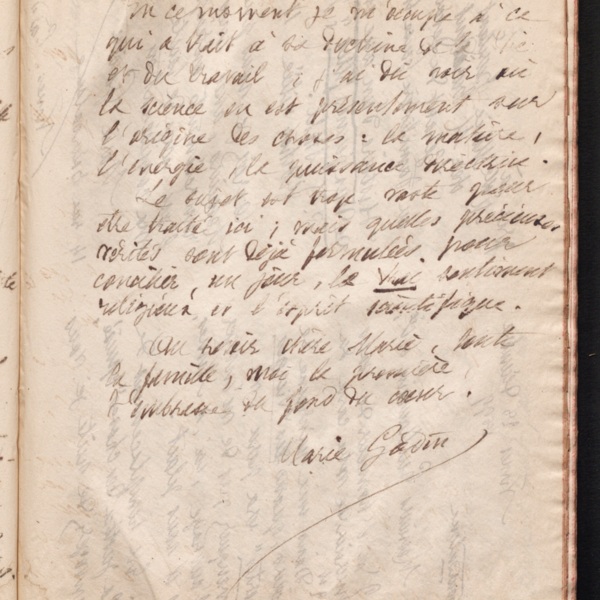 En ce moment je m'occupe de ce
qui a trait à sa doctrine de la
et du travail ; j'ai dû voir où
la science en est présentement sur
l'origine des choses : la matière,
l'énergie, la puissance directrice.
Le sujet est trop vaste pour
être traité ici ; mais quelles précieuses
vérités sont déjà formulées pour
concilier, un jour, le vrai sentiment
religieux et l'esprit scientifique.
Au revoir chère Marie, toute
la famille, moi la première
t'embrasse du fond du cœur.
Marie Godin